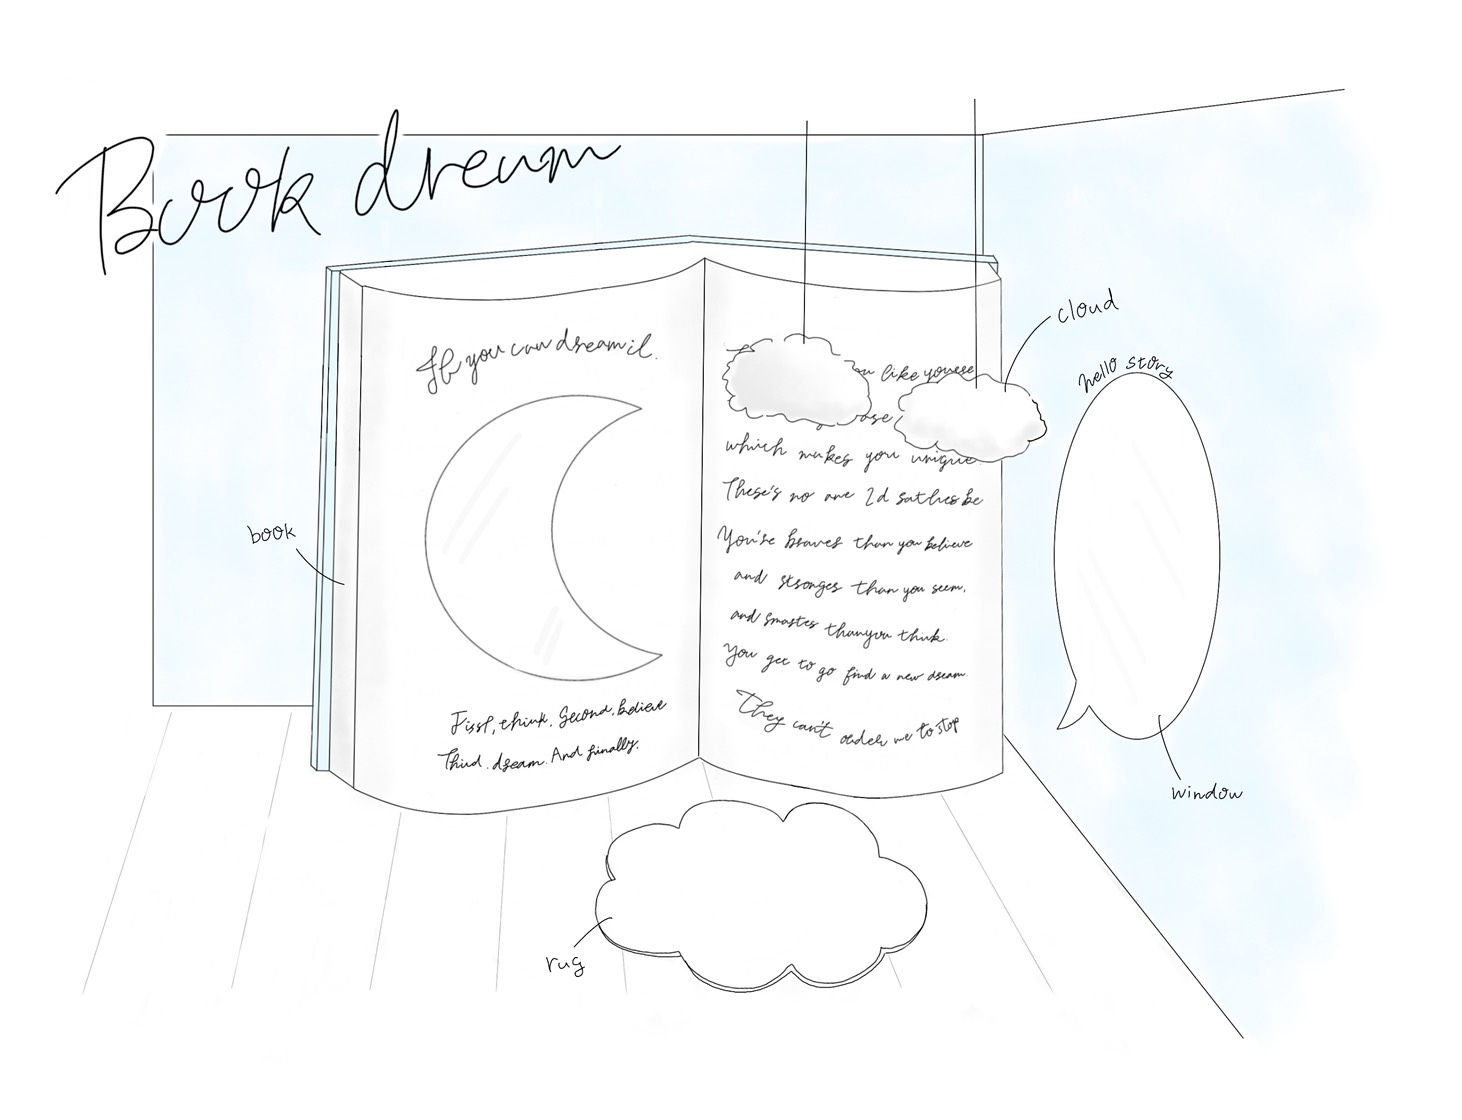 Book dream
If you can dream it.
First, think. Second, believe
Third. dream. And finally.
like youse
which makes you unique.
These's no one I'd sathes be
You're braves than you believe
and stsonges than you seem,
and smastes than you think.
You get to go find a new dseam.
They can't order me to stop
cloud
hello story
book
window
rug